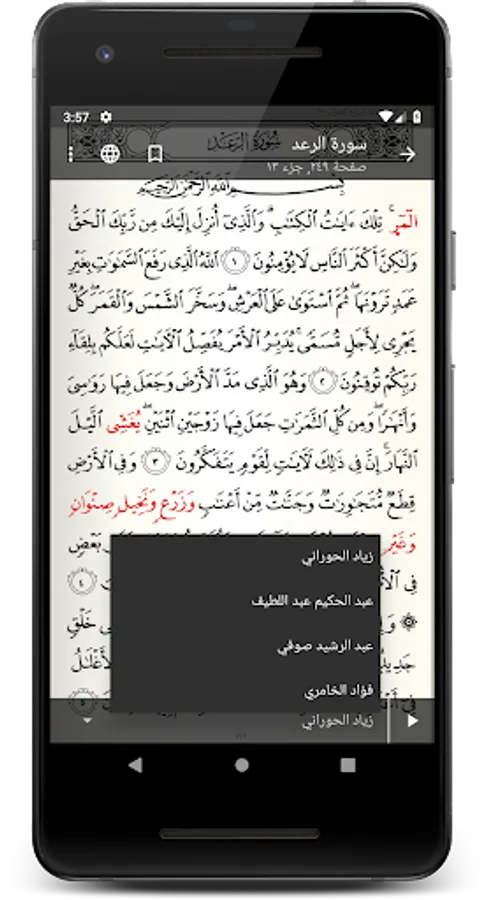 3:57
سورة الرعد
صفحة ٢٤٩, جزء ١٣
سُورَةُ الرَّعْدِ
بِسْمِ اللَّهِ الرَّحْمَٰنِ الرَّحِيمِ
الٓمٓر ۚ تِلْكَ ءَايَٰتُ الْكِتَٰبِ ۗ وَالَّذِىٓ أُنزِلَ إِلَيْكَ مِن رَّبِّكَ الْحَقُّ
وَلَٰكِنَّ أَكْثَرَ النَّاسِ لَا يُؤْمِنُونَ ١ اللَّهُ الَّذِى رَفَعَ السَّمَٰوَٰتِ بِغَيْرِ
عَمَدٍ تَرَوْنَهَا ۖ ثُمَّ اسْتَوَىٰ عَلَى الْعَرْشِ ۖ وَسَخَّرَ الشَّمْسَ وَالْقَمَرَ ۖ كُلٌّ
يَجْرِى لِأَجَلٍ مُّسَمًّى ۚ يُدَبِّرُ الْأَمْرَ يُفَصِّلُ الْءَايَٰتِ لَعَلَّكُم بِلِقَآءِ
رَبِّكُمْ تُوقِنُونَ ٢ وَهُوَ الَّذِى مَدَّ الْأَرْضَ وَجَعَلَ فِيهَا رَوَٰسِىَ
وَأَنْهَٰرًا ۖ وَمِن كُلِّ الثَّمَرَٰتِ جَعَلَ فِيهَا زَوْجَيْنِ اثْنَيْنِ ۖ يُغَشِّى الَّيْلَ
النَّهَارَ ۚ إِنَّ فِى ذَٰلِكَ لَءَايَٰتٍ لِّقَوْمٍ يَتَفَكَّرُونَ ٣ وَفِى الْأَرْضِ
قِطَعٌ مُّتَجَٰوِرَٰتٌ وَجَنَّٰتٌ مِّنْ أَعْنَٰبٍ وَزَرْعٍ وَنَخِيلٍ صِنْوَانٍ
وَغَيْرِ بَعْضٍ
فِى ٤
خَلْقٍ
جَدِيدٍ الْأَغْلَٰلُ
فِىٓ ٥
زياد الحوراني
عبد الحكيم عبد اللطيف
عبد الرشيد صوفي
فؤاد الخامري
زياد الحوراني